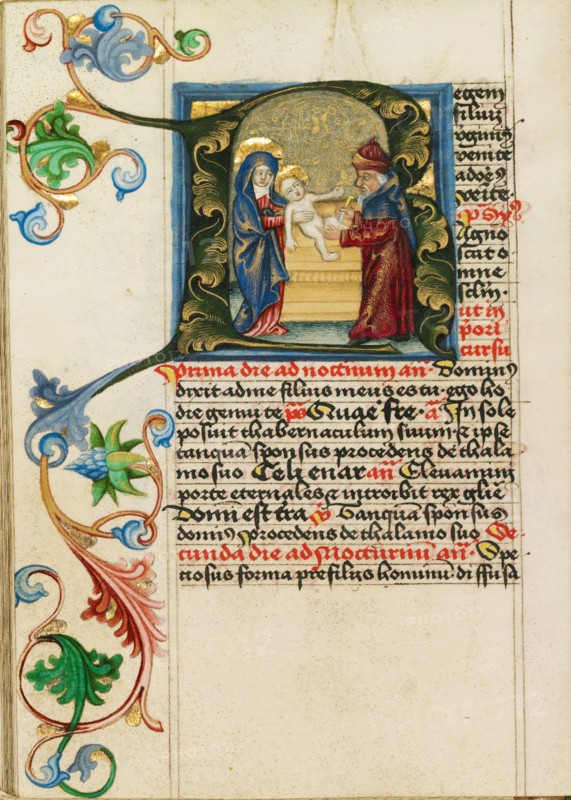 egem
filiū
virginis
venite
adorem9
Venite
ps
Agno
scat o
mne
sclm
ut in
p̄ori
cursu
Prima die ad nocturnum an̄ Dominus
dixit ad me filius meus es tu ego ho
die genui te ps Quare fre a In sole
posuit thabernaculum suum et ipse
tanquā sponsus procedens de thala
mo suo Celi enar an̄ Elevamini
porte eternales et introibit rex glie
Domi est tra Tanquā sponsus
domin9 procedens de thalamo suo Se
cunda die ad Nocturnū an̄ Spe
tiosus forma pre filijs hominū diffusa